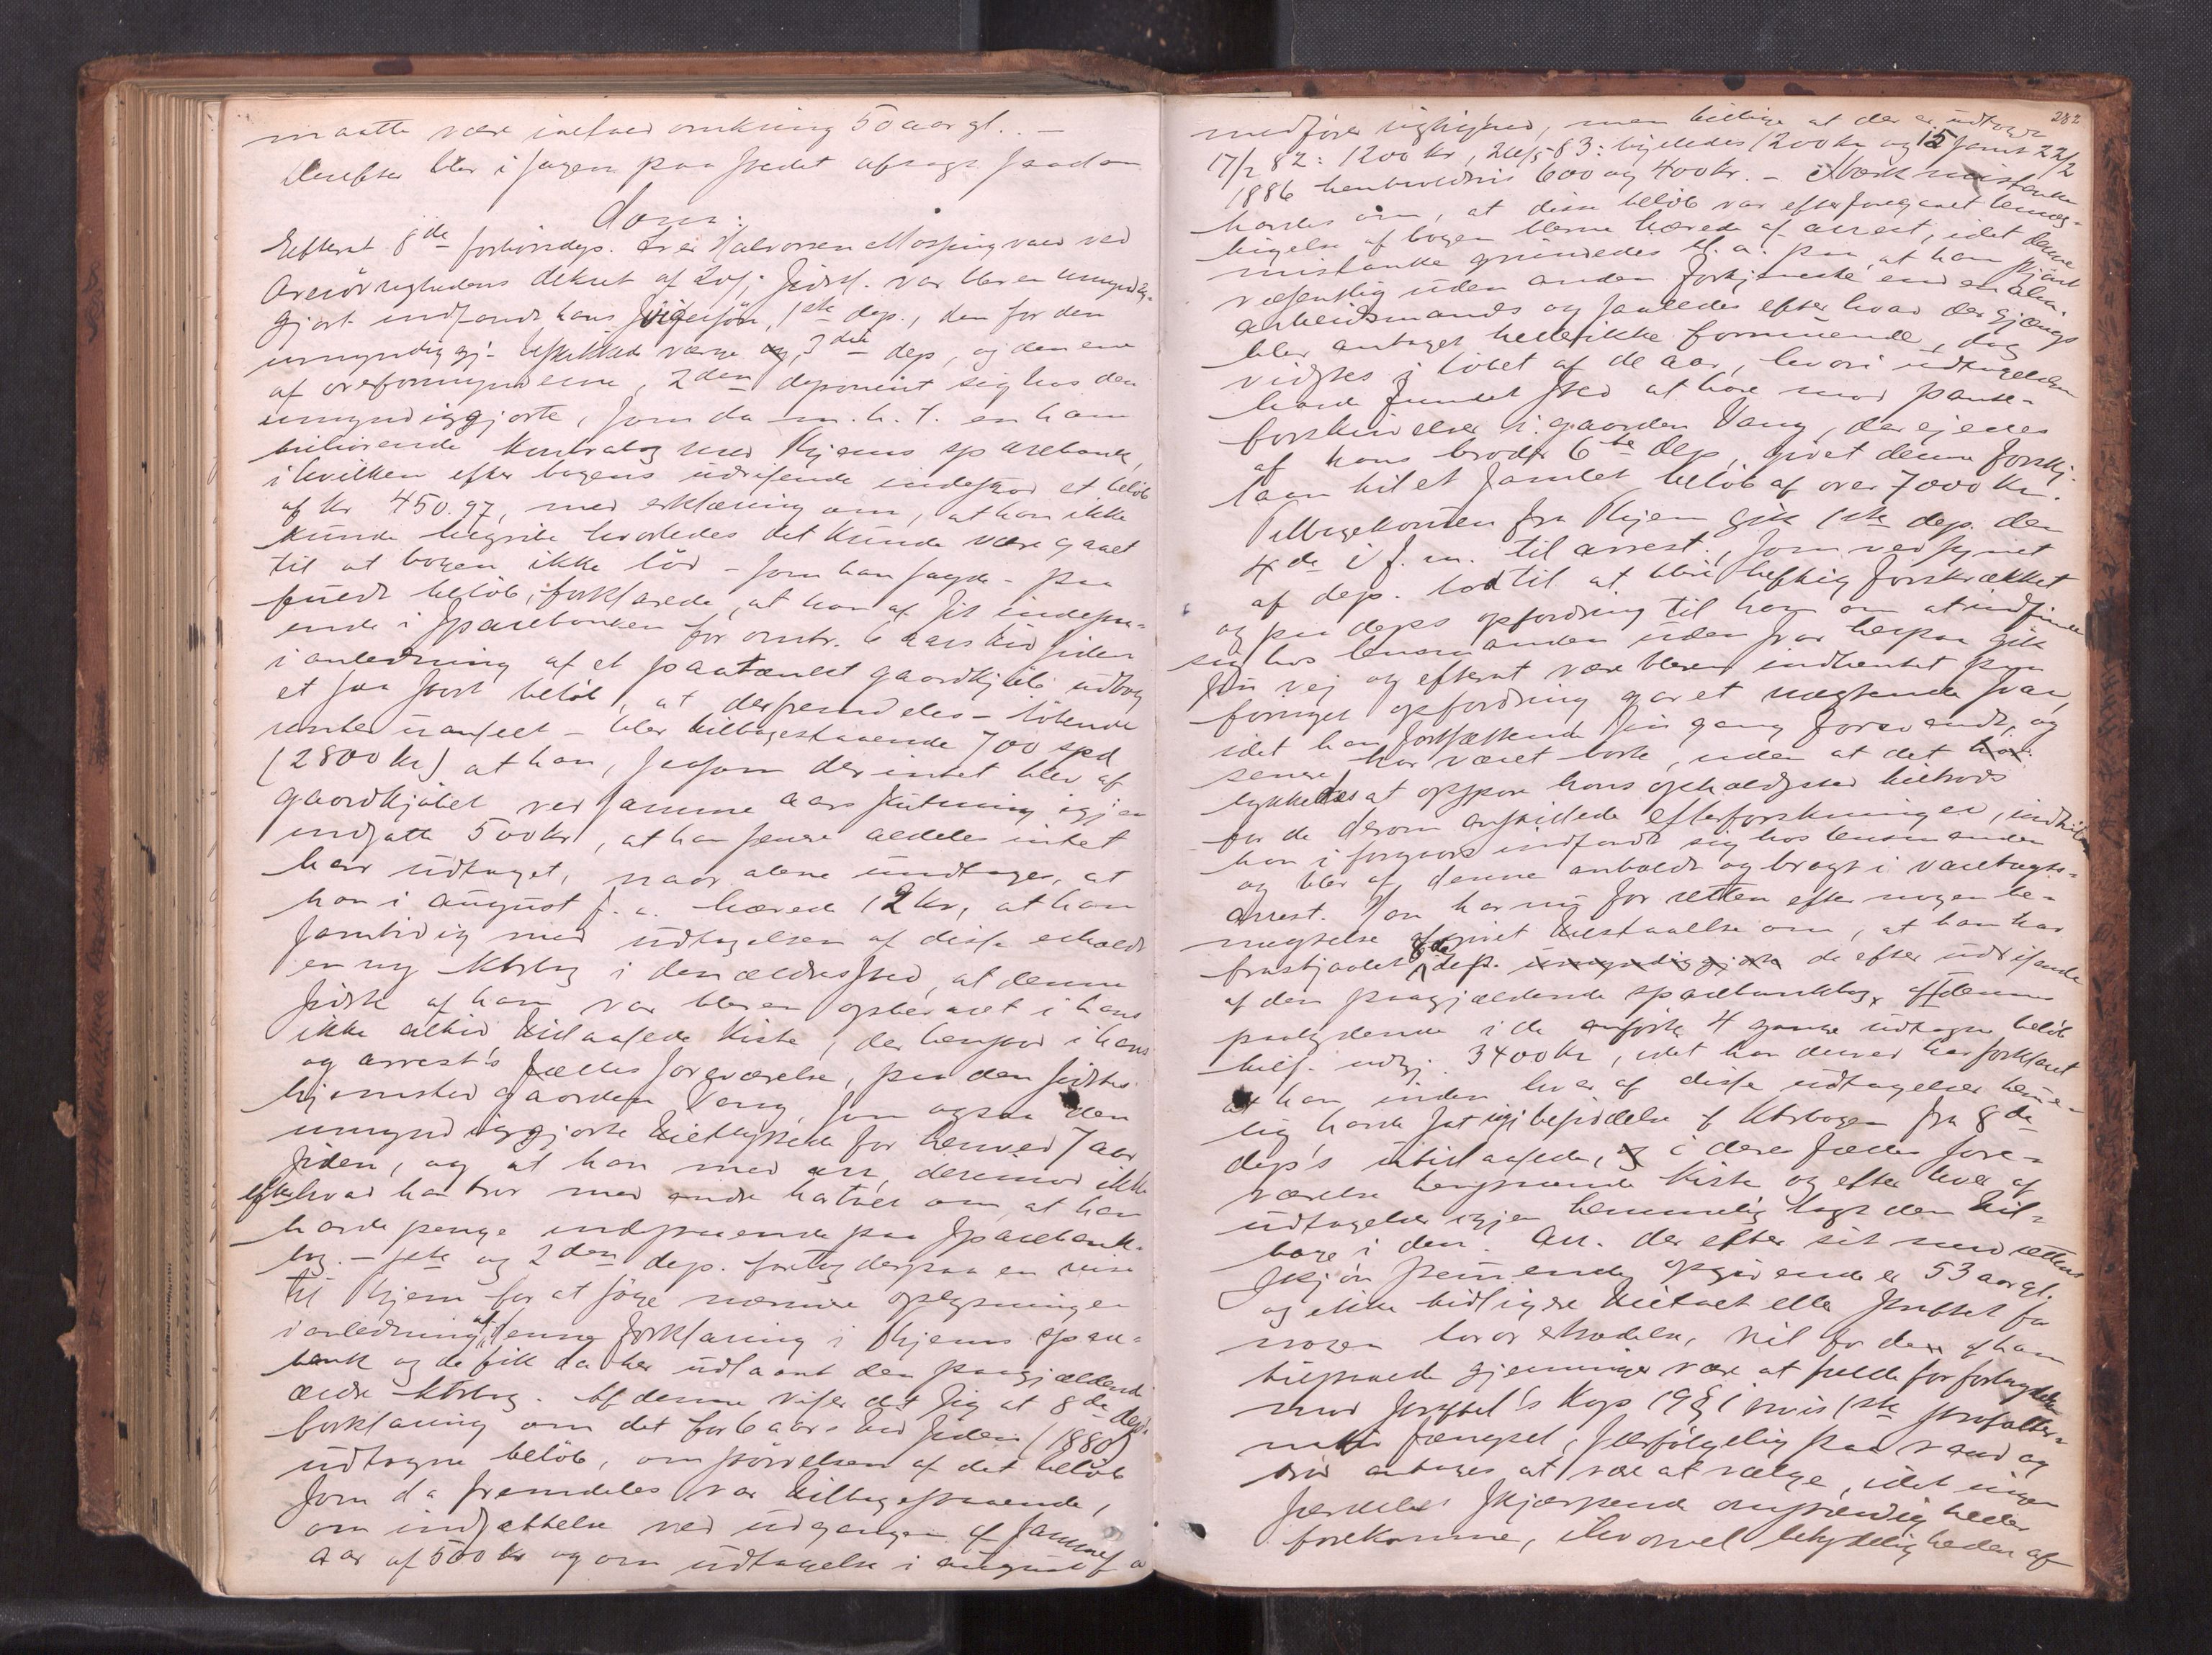 maatte være ialfald omkring 50 aar gl. . —
Derefter blev i sagen paa stedet afsagt saadan
dom:
Efterat 8de forhørsdep. Halvorsen Mossing var ved
Overøvrighedens dekret af sidstl. var bleven umyndig-
gjort indfandt hans 1ste dep., den for den
umyndiggj. beskikkede værge og, 3die dep, og den ene
af overformynderne, 2den deponent sig hos den
umyndiggjorte, som da m. h. t. en ham
tilhørende kontrabog med Skjems sparebank,
i hvilken efter bogens udvisende indestod et beløb
af kr 450.97, med erklæring om, at han ikke
kunde begribe hvorledes det kunde være gaaet
til at bogen ikke lød – som han sagde – paa
beløb, forklarede, at han af sit indestaa-
ende i sparebanken for omtr. 6 aars tid siden
i anledning af et paatænkt gaardkjøb udtog
et saa stort beløb, at der fremdeles – løbende
renter uanseet – blev tilbagestaaende 700 spd
(2800 kr) at han, saasom der intet blev af
gaardkjøbet ved samme aars slutning igjen
indsatte 500 kr, at han senere aldeles intet
har udtaget, naar alene undtages, at
han i august f. a. hævede 12 kr, at han
samtidig med udtagelsen af disse erholdt
en ny ktrbog i den ældres sted, at denne
sidste af ham var bleven opbevaret i hans
ikke altid tillaasede kiste, der henstod i hans
og arrest's fælles soveværelse, paa den sidstes
hjemsted gaarden Vang, som ogsaa den
umyndiggjorte tilflyttede for henved 7 aar
siden, og at han med arr, derimod ikke
efter hvad han tror med andre har talt om, at han
havde penge indestaaende paa sparebank-
bog. – 1ste og 2den dep. foretog derpaa en reise
til Skjem for at søge nærmere oplysninger
i anledning af denne forklaring i Skjems spare-
bank og de fik da her udlaant den paagjældende
ældre ktrbog. Af denne viser det sig at 8de dep's
forklaring om det for 6 aars tid siden (1880)
udtagne beløb, om størrelsen af det beløb
som da fremdeles var tilbagestaaende,
om indsættelse ved udgangen af samme
aar af 500 kr og om udtagelse i august f. a
282
medfører rigtighed, men tillige at der er udtaget
17/2 82: 1200 kr, 24/5 83: ligeledes 1200 kr og 15 samt 22/2
1886 henholdsvis 600 og 400 kr. –
havdes om, at disse beløb var efter foregaaet bemæg-
tigelse af bogen blevne hævede af arrest, idet denne
mistanke grundedes bl. a. paa, at han skjønt
væsentlig uden anden fortjeneste end en alm
arbeidsmands og saaledes efter hvad der gjængs
blev antaget heller ikke formuende, dog
vidstes i løbet af de aar, hvori udtagelsen
havde fundet sted at have mod pante-
forskrivelser i gaarden Vang, der ejedes
af hans broder 6te dep, givet denne forskj.
laan til et samlet beløb af over 7000 kr.
Tilbagekomen fra Skjem gik 1ste dep. den
4de i f. m. til arrest., som ved synet
af dep. lod til at blive heftig forskrækket
og paa deps opfordring til ham om at indfinde
sig hos lensmanden uden svar herpaa gik
sin vej og efterat være bleven indhentet paa
fornyet opfordring gav et nægtende svar,
idet han fortsættende sin gang forsvandt, og
senere har været borte, uden at det
lykkedes at opspore hans opholdssted tiltrods
for de derom anstillede efterforskninger, indtil
han i forgaars indfandt sig hos lensmanden
og blev af denne anholdt og bragt i varetægts-
arrest. Han har nu for retten efter nogen be-
nægtelse afgivet tilstaaelse om, at han har
frastjaalet 8de dep. umyndiggjorte de efter udvisende
af den paagjældende sparebankbog, af dennes
paalydende i de anførte 4 gange udtagne beløb
tils. udgj. 3400 kr, idet han derved har forklaret
at han inden hver af disse udtagelser hemme-
lig havde sat sig i besiddelse af ktrbogen fra 8de
dep's utillaasede, og i deres fælles sove-
værelse henstaaende kiste og efter hver af
udtagelser igjen hemmelig lagt den til-
bage i den. Arr. der efter sit med rettens
skjøn stemmende opgivende er 53 aar gl.
og ikke tidligere tiltalt eller straffet for
nogen lovovertrædelse, vil for den af ham
tilstaaede gjerninger være at fælde for forbrydelse
mod straffel's kap 19 § 1 hvis 1ste straffalter-
nativ fængsel, selvfølgelig paa vand og
brød antages at være at vælge, idet ingen
særdeles skjærpende omstændigheder
forekomme, ihvorvel betydeligheden af